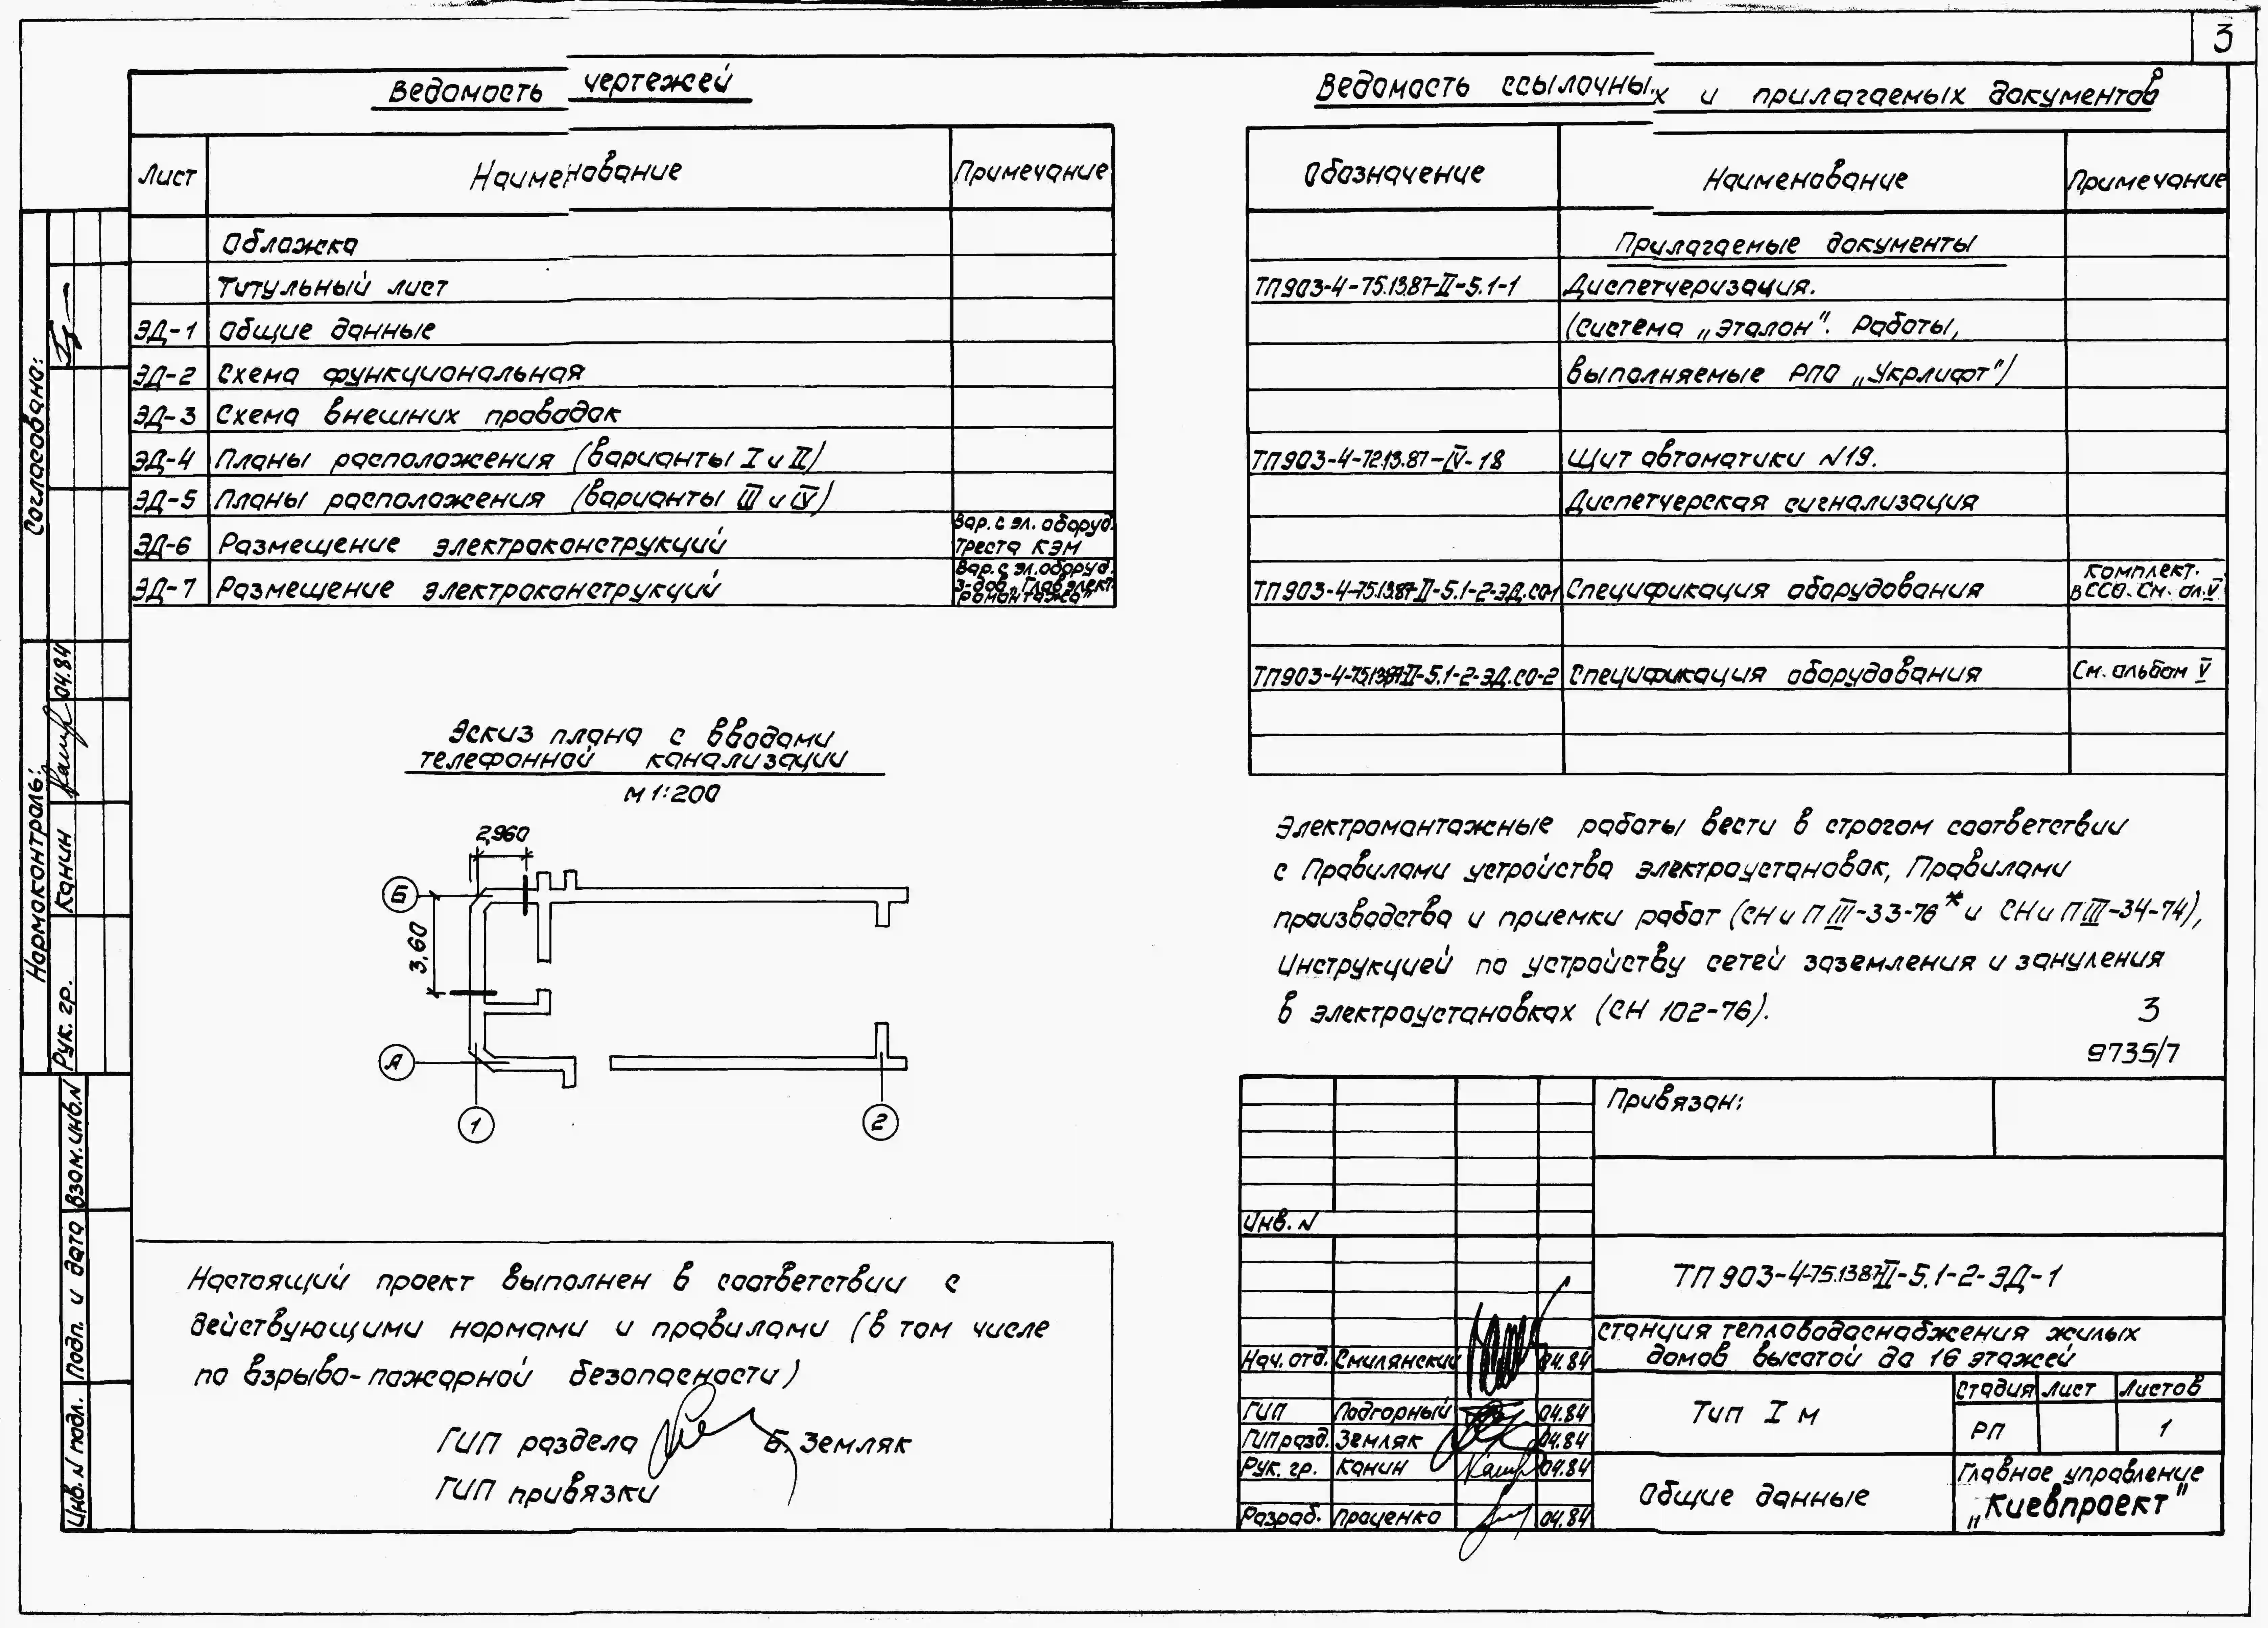 3
Ведомость чертежей
Лист Наименование Примечание
Обложка
Титульный лист
ЭД-1 Общие данные
ЭД-2 Схема функциональная
ЭД-3 Схема внешних проводок
ЭД-4 Планы расположения (варианты I и II)
ЭД-5 Планы расположения (варианты III и IV)
ЭД-6 Размещение электроконструкций Вар. с эл. оборуд.
треста КЭМ
ЭД-7 Размещение электроконструкций Вар. с эл. оборуд.
з-дов „Главэлект
ромонтажа"
Ведомость ссылочных и прилагаемых документов
Обозначение Наименование Примечание
Прилагаемые документы
ТП903-4-75.13.87-II-5.1-1 Диспетчеризация.
(система „Эталон". Работы,
выполняемые РПО „Укрлифт")
ТП903-4-72.13.87-IV-18 Щит автоматики N19.
Диспетчерская сигнализация
ТП903-4-75.13.87-II-5.1-2-ЭД.СО-1 Спецификация оборудования комплект.
в ССО. См. ал. V
ТП903-4-75.13.87-II-5.1-2-ЭД.СО-2 Спецификация оборудования См. альбом V
Эскиз плана с вводами
телефонной канализации
М 1:200
2,960
Б
3,60
А
1
2
Электромонтажные работы вести в строгом соответствии
с Правилами устройства электроустановок, Правилами
производства и приемки работ (СНиП III-33-76* и СНиП III-34-74),
Инструкцией по устройству сетей заземления и зануления
в электроустановках (СН 102-76).
3
9735/7
Настоящий проект выполнен в соответствии с
действующими нормами и правилами (в том числе
по взрыво-пожарной безопасности)
ГИП раздела Б. Земляк
ГИП привязки
Привязан:
Инв. N
ТП 903-4-75.13.87-II-5.1-2-ЭД-1
Станция тепловодоснабжения жилых
домов высотой до 16 этажей
Нач. отд. Смилянский 04.84
ГИП Подгорный 04.84
ГИП разд. Земляк 04.84
Рук. гр. Канин 04.84
Разраб. Проценко 04.84
Тип I м
Стадия Лист Листов
РП 1
Общие данные
Главное управление
„Киевпроект"
Согласовано:
Нормоконтроль:
Рук. гр. Канин 04.84
Взам. инв. N
Подп. и дата
Инв. N подл.